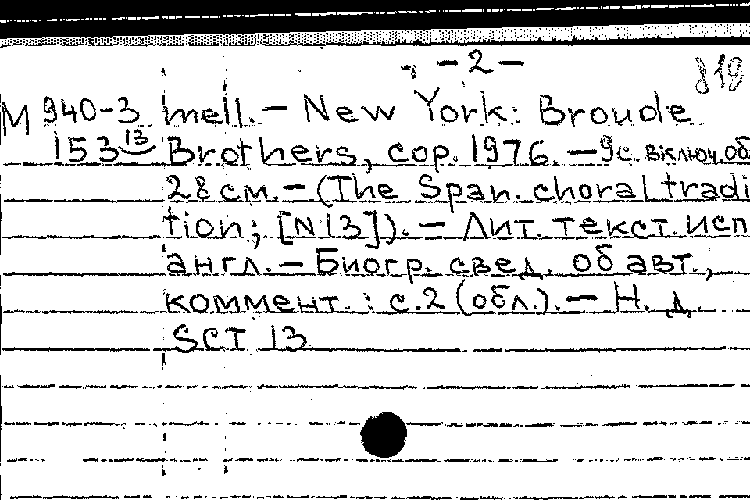 - 2 -
819
M 940-3 mell. — New York: Broude
153 13 Brothers, cop. 1976. — 9 с. включ. об
28 см. — (The Span. choral tradi
tion; [N 13]). — Лит. текст. исп
англ. — Биогр. свед. об авт.,
коммент. : с. 2 (обл.). — Н. д.
SCT 13